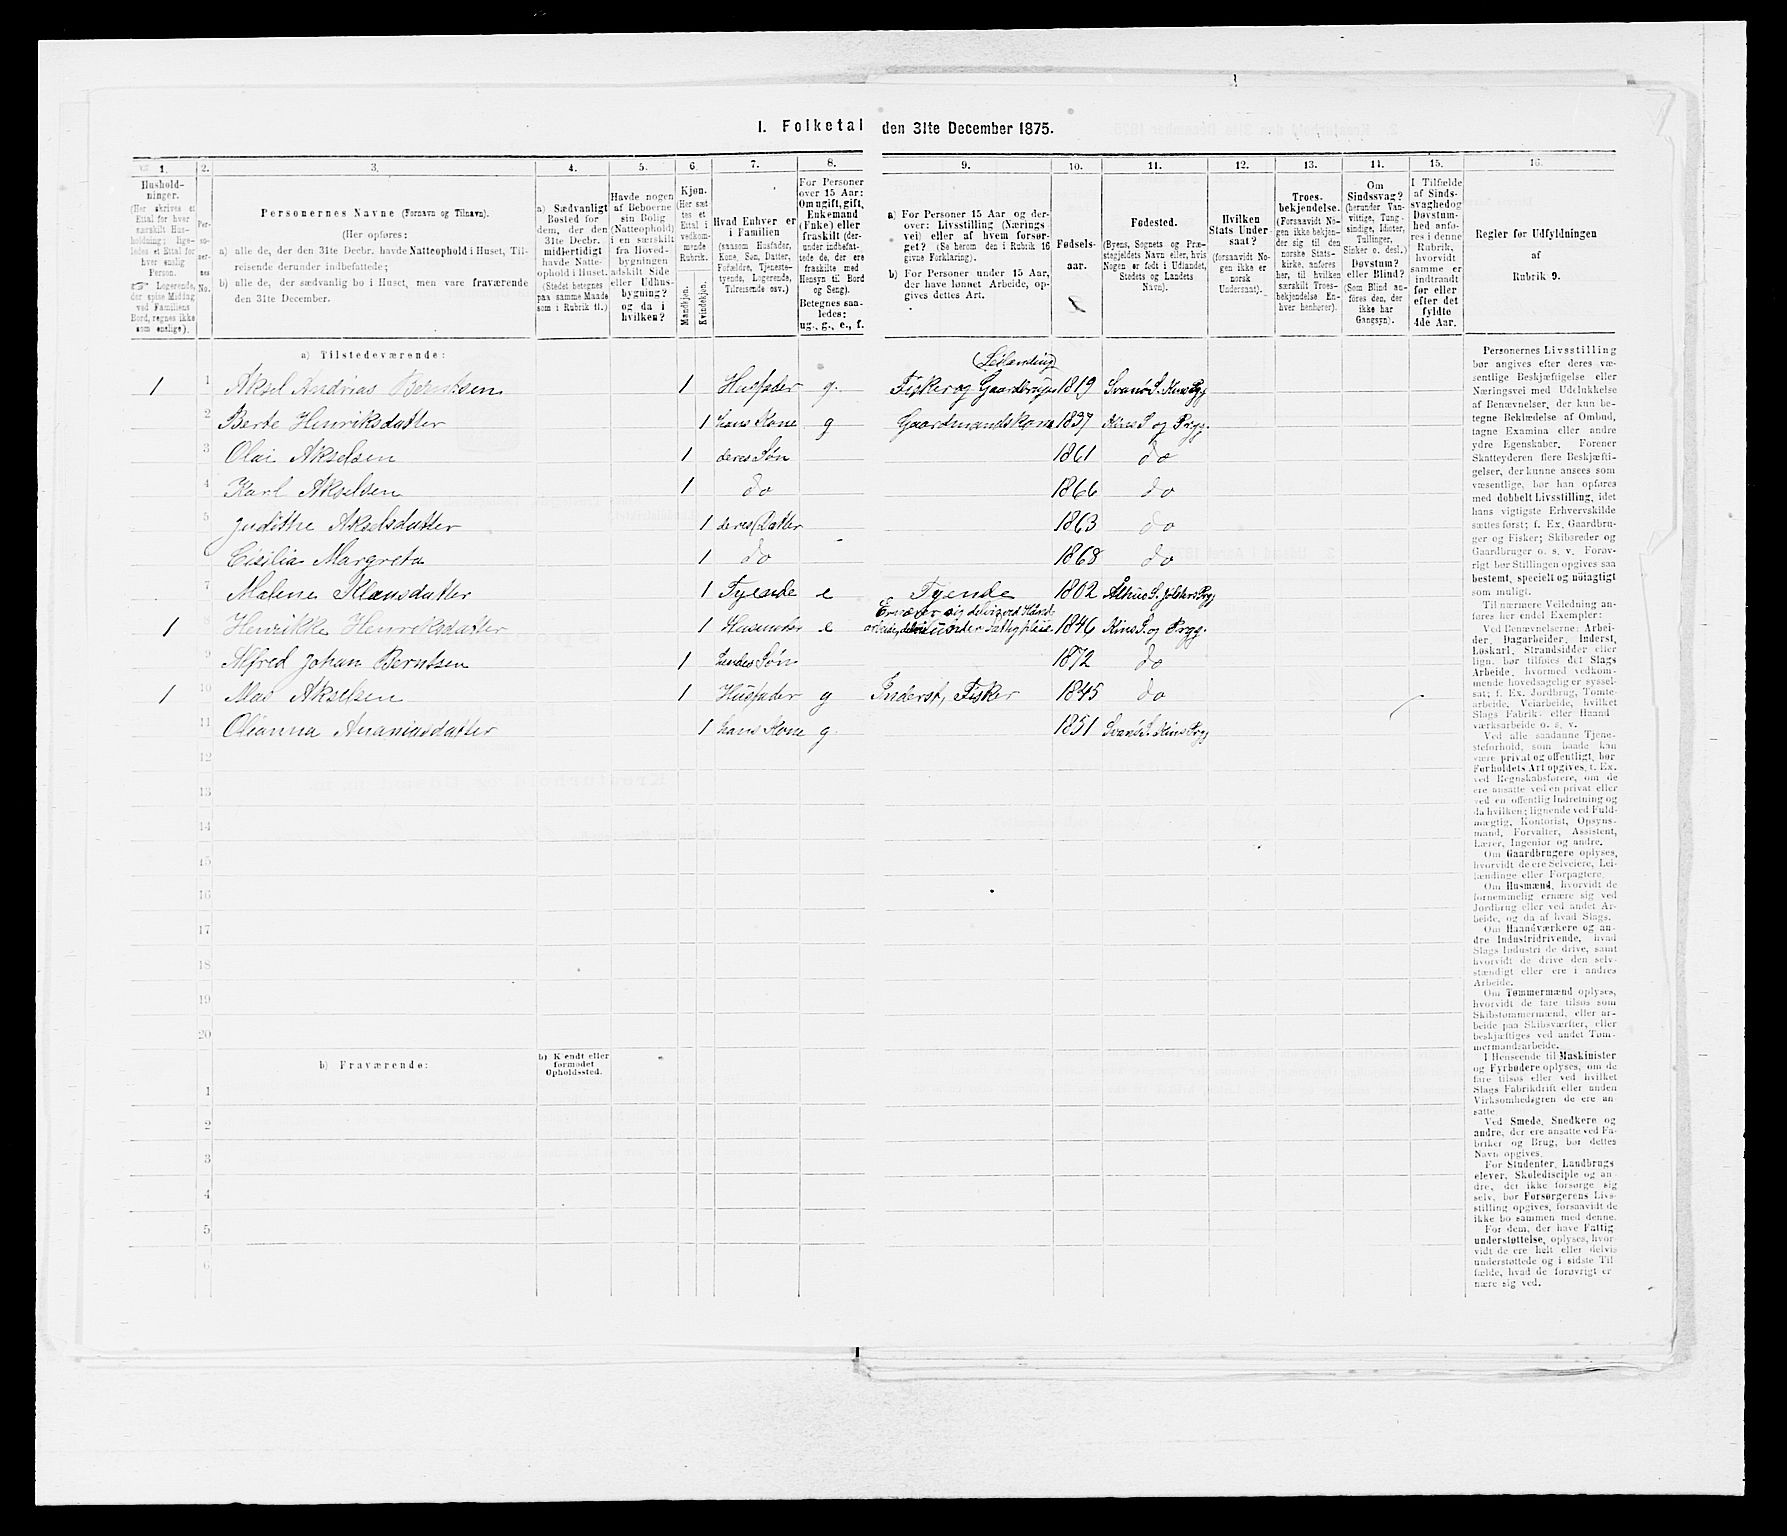 I. Folketal den 31te December 1875.
1. 2. 3. 4. 5. 6. 7. 8. 9. 10. 11. 12. 13. 14. 15. 16.
Hushold-
ninger.
(Her skrives et
Ettal for hver
særskilt Hus-
holdning; lige-
ledes et Ettal for
hver enslig
Person.
☞ Logerende,
der spise Middag
ved Familiens
Bord, regnes ikke
som enslige).
Per-
so-
ner-
nes
No.
Personernes Navne (Fornavn og Tilnavn).
(Her opføres:
a) alle de, der den 31te Decbr. havde Natteophold i Huset, Til-
reisende derunder indbefattede;
b) alle de, der sædvanlig bo i Huset, men vare fraværende
den 31te December.
a) Sædvanligt
Bosted for
dem, der den
31te Decbr.
midlertidigt
havde Natte-
ophold i Huset.
(Stedet betegnes
paa samme Maade
som i Rubrik 11.)
Havde nogen
af Beboerne
sin Bolig
(Natteophold)
i en særskilt
fra Hoved-
bygningen
adskilt Side
eller Udhus-
bygning?
og da i
hvilken?
Kjøn.
(Her sæt-
tes et
Ettal i
vedkom-
mende
Rubrik.
Mandkjøn.
Kvindekjøn.
Hvad Enhver er
i Familien
(saasom Husfader,
Kone, Søn, Datter,
Forældre, Tjeneste-
tyende, Logerende,
Tilreisende osv.)
For Personer
over 15 Aar:
Om ugift, gift,
Enkemand
(Enke) eller
fraskilt (der-
under indbefat-
tede de, der ere
fraskilte med
Hensyn til Bord
og Seng).
Betegnes saa-
ledes:
ug., g., e., f.
a) For Personer 15 Aar og der-
over: Livsstilling (Nærings-
vei) eller af hvem forsør-
get? (Se herom den i Rubrik 16
givne Forklaring).
b) For Personer under 15 Aar,
der have lønnet Arbeide, op-
gives dettes Art.
Fødsels-
aar.
Fødested.
(Byens, Sognets og Præ-
stegjeldets Navn eller, hvis
Nogen er født i Udlandet,
Stedets og Landets
Navn).
Hvilken
Stats Under-
saat?
(forsaavidt No-
gen ikke er
norsk
Undersaat).
Troes-
bekjendelse.
(Forsaavidt No-
gen ikke bekjen-
der sig til den
norske Stats-
kirke, anføres
her, til hvilken
særskilt Troes-
bekjendelse En-
hver henhører).
Om
Sindssvag?
(herunder Van-
vittige, Tung-
sindige, Idioter,
Tullinger,
Sinker o. desl.)
Døvstum?
eller Blind?
(Som Blind an-
føres den, der
ikke har
Gangsyn).
I Tilfælde
af Sinds-
svaghed og
Døvstum-
hed anfø-
res i denne
Rubrik,
hvorvidt
samme er
indtraadt
før eller
efter det
fyldte
4de Aar.
Regler for Udfyldningen
af
Rubrik 9.
a) Tilstedeværende:
Leilænding
1 1 Aksel Andrias Berntsen 1 Husfader g. Fisker og Gaardbruger 1819 Svanø S. Kins Prgj
2 Berte Henriksdatter 1 hans Kone g Gaardmandskone 1837 Kins S. og Prgj.
3 Olai Akselsen 1 deres Søn 1861 do
4 Karl Akselsen 1 do 1866 do
5 Judithe Akselsdatter 1 deres Datter 1863 do
Cisilia Margreta 1 do 1868 do
7 Malene Klausdatter 1 Tyende e Tyende 1802 S. Jølster Prgj
1 8 Henrikke Henriksdatter 1 Husmoder e Ernærer sig delvis ved Haand-
arbeide, delvis under Fattigpleie 1846 Kins S. og Prgj.
9 Alfred Johan Berntsen 1 hendes Søn 1872 do
1 10 Mas Akselsen 1 Husfader g Inderst, Fisker 1845 do
11 Olianna Ananiasdatter 1 hans Kone g. 1851 Svanø S. Kins Prgj
12
13
14
15
16
17
18
19
20
b) Fraværende:
b) Kjendt eller
formodet
Opholdssted.
1
2
3
4
5
6
Personernes Livsstilling
bør angives efter deres væ-
sentlige Beskjæftigelse eller
Næringsvei med Udelukkelse
af Benævnelser, der kun be-
tegne Beklædelse af Ombud,
tagne Examina eller andre
ydre Egenskaber. Forener
Skatteyderen flere Beskjæfti-
gelser, der kunne ansees som
væsentlige, bør han opføres
med dobbelt Livsstilling, idet
hans vigtigste Erhvervskilde
sættes først; f. Ex. Gaardbru-
ger og Fisker; Skibsreder og
Gaardbruger o. s. v. Forøv-
rigt bør Stillingen opgives saa
bestemt, specielt og nøiagtigt
som muligt.
Til nærmere Veiledning an-
føres her endel Exempler:
Ved Benævnelserne: Arbei-
der, Dagarbeider, Inderst,
Løskarl, Strandsidder eller
lign. bør tilføies det Slags
Arbeide, hvormed vedkom-
mende hovedsagelig er syssel-
sat; f. Ex. Jordbrug, Tomte-
arbeide, Veiarbeide, hvilket
Slags Fabrik- eller Haand-
værksarbeide o. s. v.
Ved alle saadanne Tjene-
steforhold, som baade kan
være privat og offentligt, bør
Forholdets Art opgives, t. Ex.
ved Regnskabsførere, om de
ere ansatte ved en privat eller
ved en offentlig Indretning og
da hvilken; lignende ved Fuld-
mægtig, Kontorist, Opsyns-
mand, Forvalter, Assistent,
Lærer, Ingeniør og andre.
Om Gaardbrugere oplyses,
hvorvidt de ere Selveiere, Lei-
lændinge eller Forpagtere.
Om Husmænd, hvorvidt de
fornemmelig ernære sig ved
Jordbrug eller ved andet Ar-
beide, og da af hvad Slags.
Om Haandværkere og an-
dre Industridrivende, hvad
Slags Industri de drive, samt
hvorvidt de drive den selv-
stændigt eller ere i andres
Arbeide.
Om Tømmermænd oplyses,
hvorvidt de fare tilsøs som
Skibstømmermænd, eller ar-
beide paa Skibsværfter, eller
beskjæftiges ved andet Tøm-
mermandsarbeide.
I Henseende til Maskinister
og Fyrbødere oplyses, om de
fare tilsøs eller ved hvilket
Slags Fabrikdrift eller anden
Virksomhedsgren de ere an-
satte.
Ved Smede, Snedkere og
andre, der ere ansatte ved Fa-
briker og Brug, bør dettes
Navn opgives.
For Studenter, Landbrugs-
elever, Skoledisciple og an-
dre, der ikke forsørge sig
selv, bør Forsørgerens Livs-
stilling opgives, forsaavidt de
ikke bo sammen med denne.
For dem, der have Fattig-
understøttelse, oplyses, hvor-
vidt de ere helt eller delvis
understøttede og i sidste Til-
fælde, hvad de forøvrigt er-
nære sig ved.